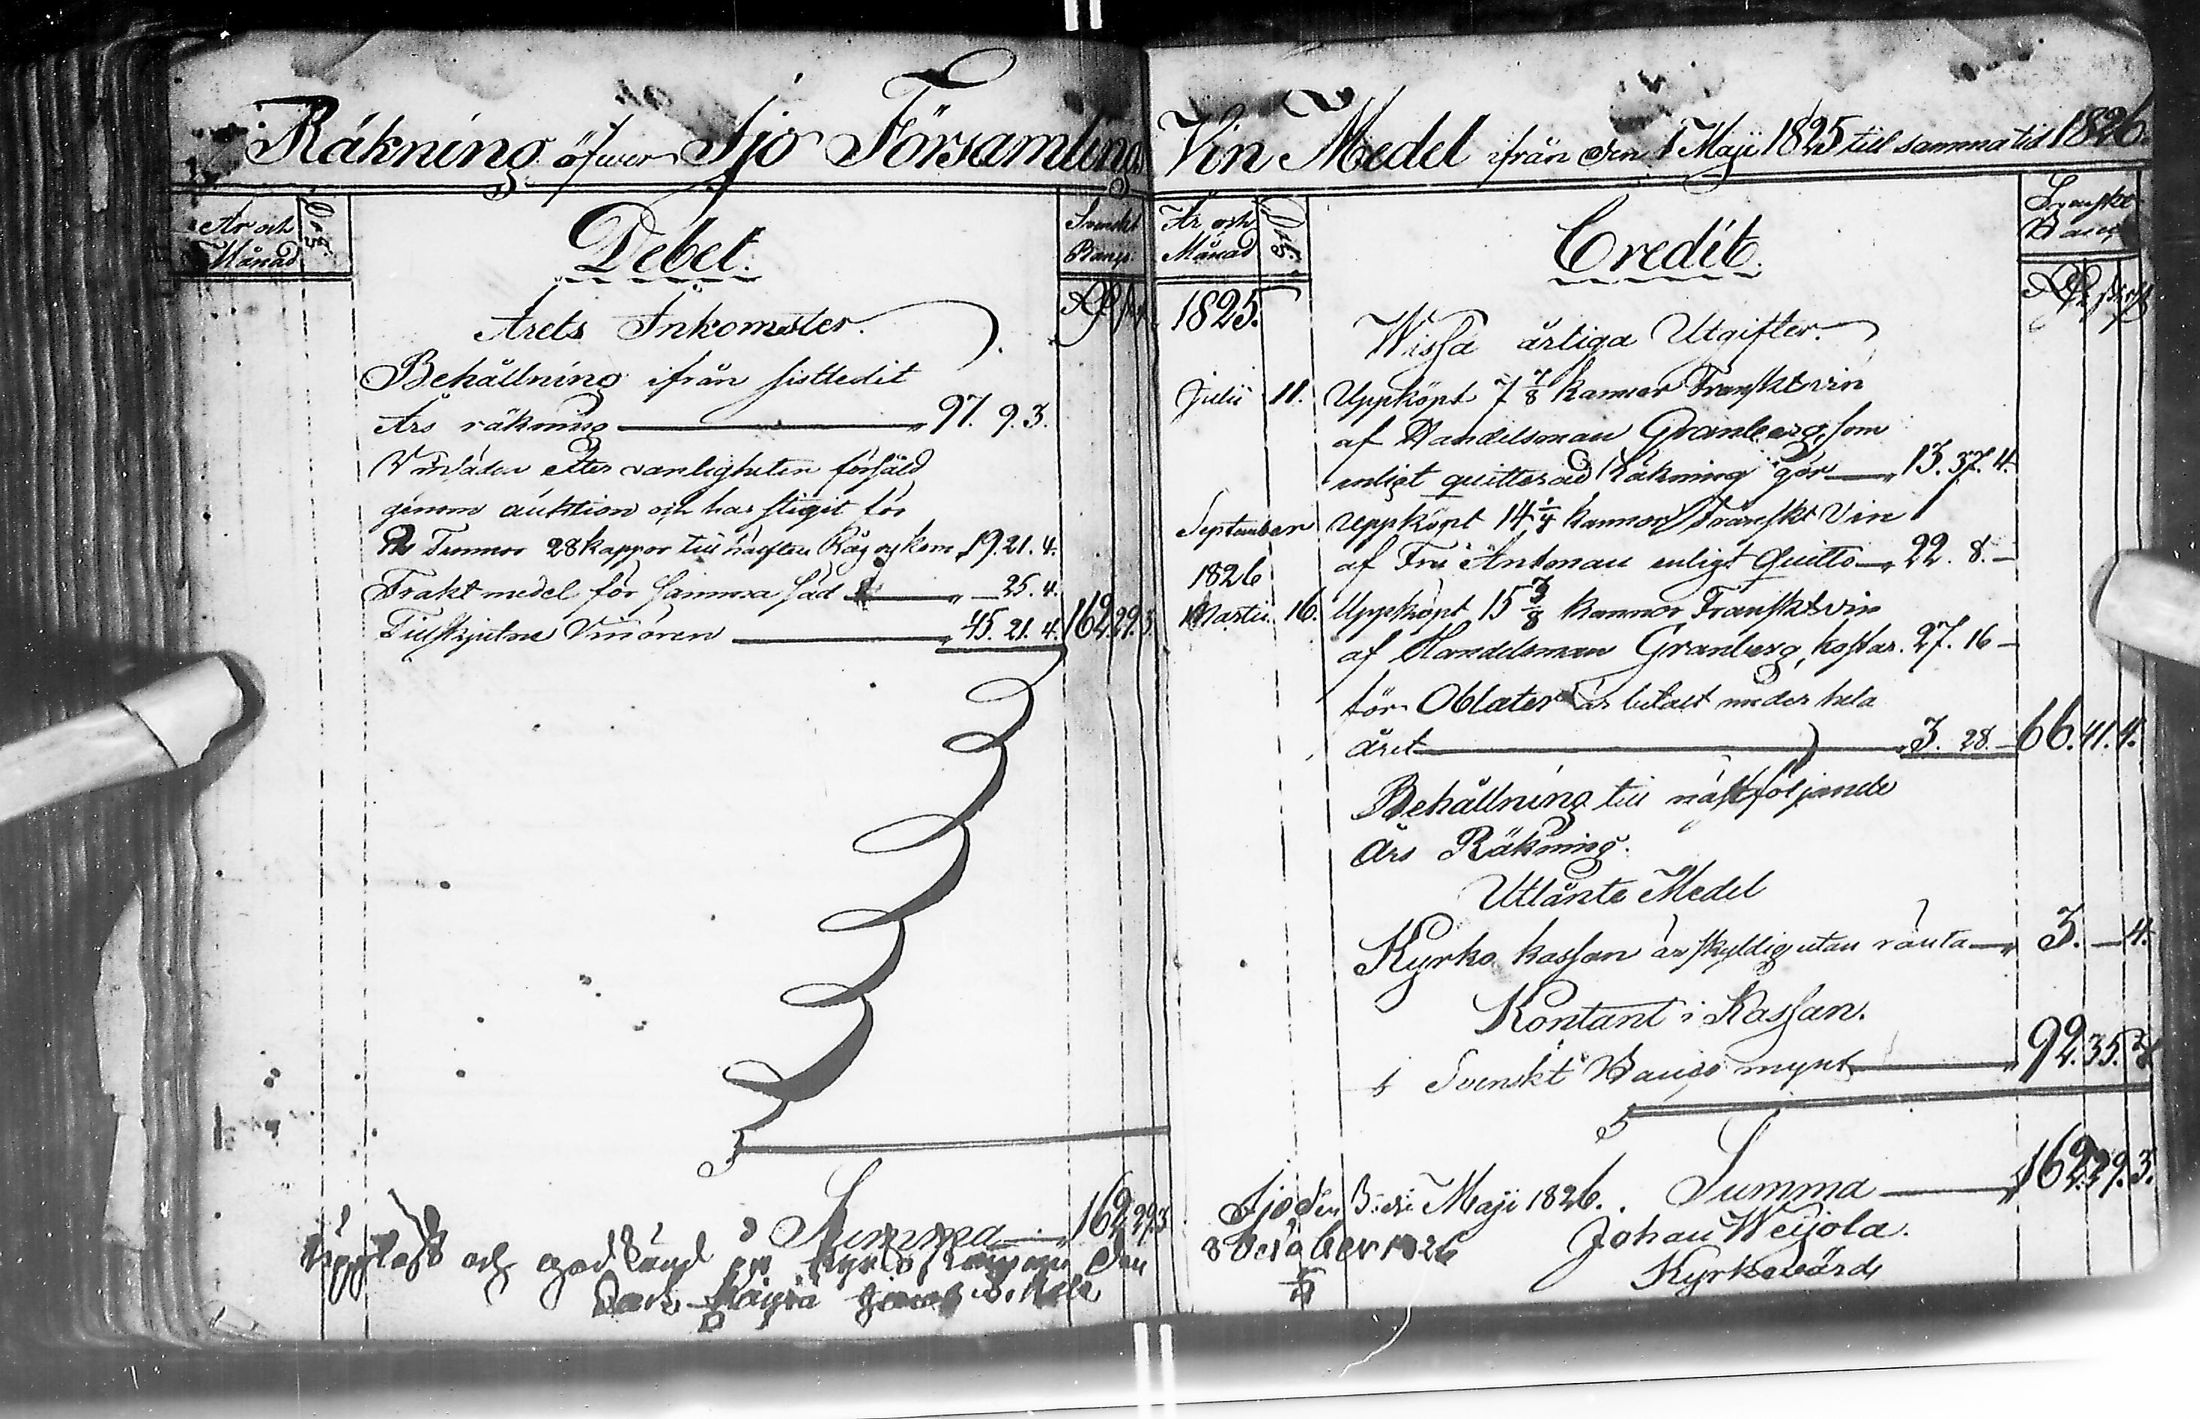 Räkning öfwer Ijo Församlings Vin Medel ifrån den 1 Maji 1825 till samma tid 1826.
År och Månad
Dag.
Debet.
Svenskt Banco
Årets Inkomster.
Behållning ifrån sistledit
Års räkning 97. 9. 3.
Vinsäden efter vanligheten försåld
genom auktion och har stigit för
Tunnor 28 kappor till hälften Råg och korn 19. 21. 4.
Frakt medel för samma säd — 25. 4.
Tillskjutne Vinören 45. 21. 4. 162. 29. 3.
Summa 162. 29. 3.
Uppläst och godkänd på Kyrko stämma den
År och Månad
Dag.
Credit.
Svenskt Banco
1825.
Wissa årliga Utgifter.
Julii 11. Uppköpt 7 7/8 kannor Franskt vin
af Handelsman Granberg, som
enligt quitterad Räkning gör 13. 37. 4.
September Uppköpt 14 1/4 kannor Franskt Vin
af Fru Antman enligt Quitto 22. 8. —
1826
Martii 16. Uppköpt 15 3/8 kannor Franskt vin
af Handelsman Granberg, kostar. 27. 16 —
för Oblater är betalt under hela
året 3. 28. — 66. 41. 4.
Behållning till nästföljande
Års Räkning.
Utlånte Medel
Kyrko kassan är skyldig utan ränta 3. — 4.
Kontant i Kassan.
i Svenskt Banco mynt 92. 35. 3
Summa 162. 29. 3.
Ijo den 3:die Maji 1826.
8 October 1826
Johan Weijola.
Kyrkovärd